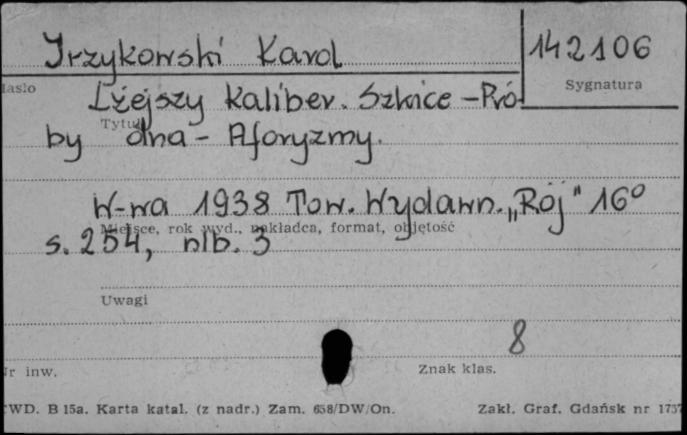 Irzykowski Karol
142106
Hasło
Sygnatura
Lżejszy kaliber. Szkice - Pró-
Tytuł
by dna - Aforyzmy.
W-wa 1938 Tow. Wydawn. „Rój" 16°
Miejsce, rok wyd., nakładca, format, objętość
s. 254, nlb. 3
Uwagi
8
Nr inw.
Znak klas.
CWD. B 15a. Karta katal. (z nadr.) Zam. 658/DW/On.
Zakł. Graf. Gdańsk nr 1737